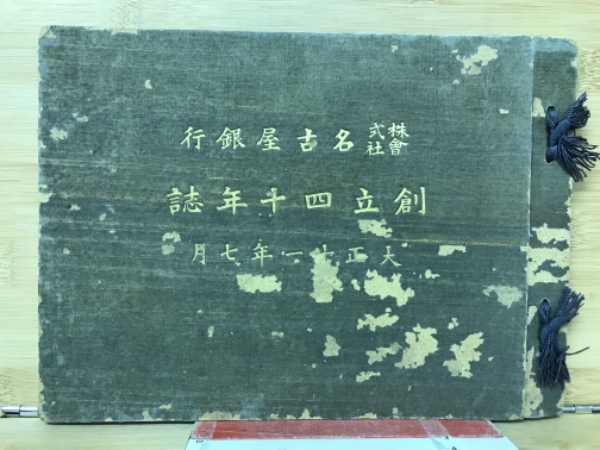 株式會社名古屋銀行
創立四十年誌
大正十一年七月